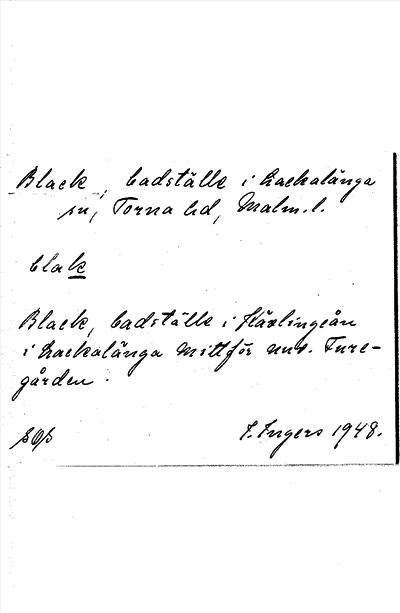 Black, badställe i Lackalänga
sn, Torna hd, Malm. l.
blak
Black, badställe i Kävlingeån
i Lackalänga mittför nuv. Ture-
gården
I. Ingers 1948.